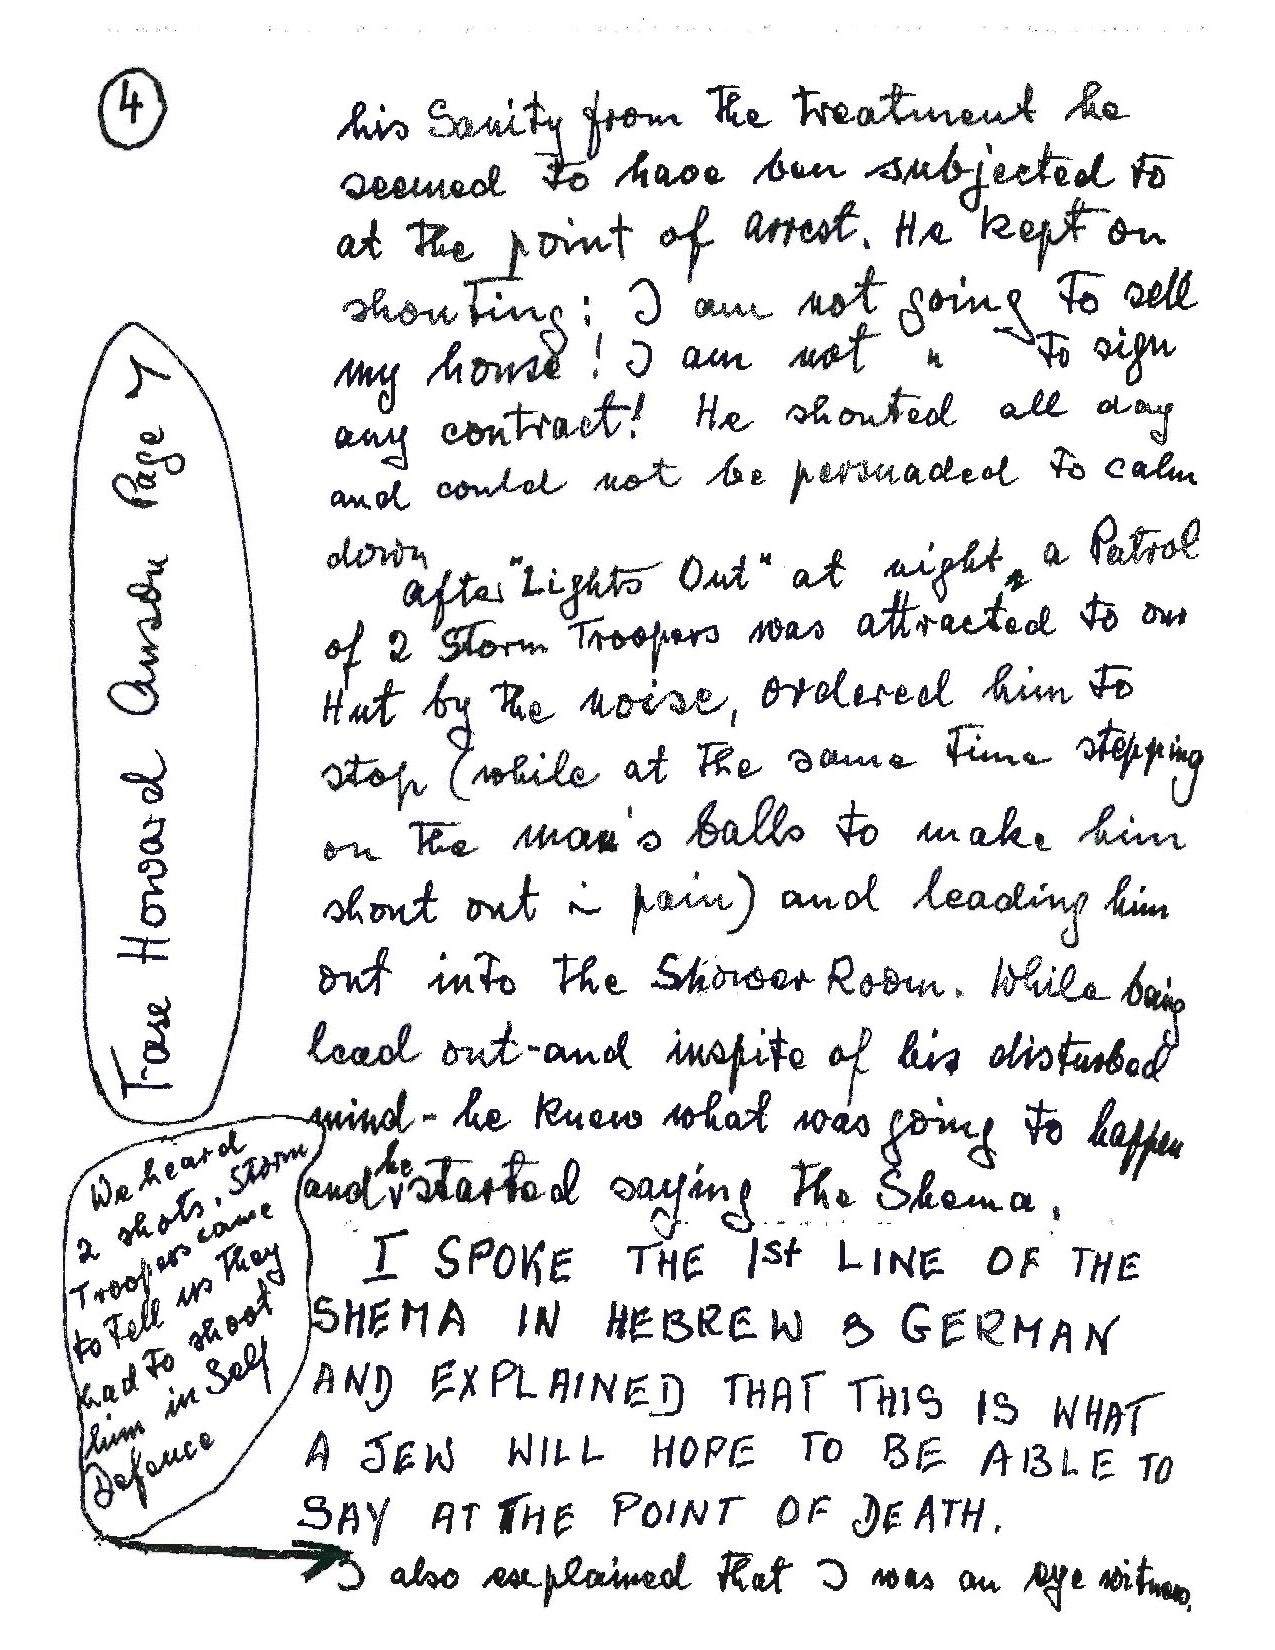 4
his Sanity from the treatment he
seemed to have ben subjected to
at the point of arrest. He kept on
shouting: I am not going to sell
my house! I am not " to sign
any contract! He shouted all day
and could not be persuaded to calm
down
after "Lights Out" at night, a Patrol
of 2 Storm Troopers was attracted to our
Hut by the noise, ordered him to
stop (while at the same time stepping
on the man's balls to make him
shout out in pain) and leading him
out into the Shower Room. While being
lead out-and inspite of his disturbed
mind - he knew what was going to happen
and he started saying the Shema.
I SPOKE THE 1st LINE OF THE
SHEMA IN HEBREW & GERMAN
AND EXPLAINED THAT THIS IS WHAT
A JEW WILL HOPE TO BE ABLE TO
SAY AT THE POINT OF DEATH.
I also explained that I was an eye witness.
Howard Page 7
We heard
2 shots, Storm
Troopers came
to tell us they
had to shoot
him in Self
Defence